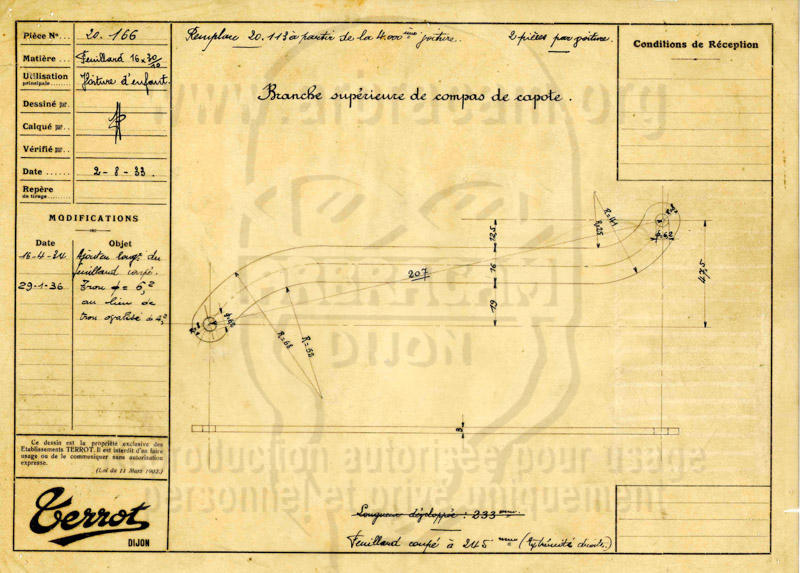 Pièce N° ... 20.166
Remplace 20.113 à partir de la 4.000ème voiture.
2 pièces par voiture.
Conditions de Réception
Matière ... Feuillard 16 x 30/10
Utilisation
principale ...... Voiture d'enfant.
Dessiné par.
Calqué par ..
Vérifié par...
Date ....... 2-8-33.
Repère
de tirage........
Branche supérieure de compas de capote.
www.arbracam.org
MODIFICATIONS
Date Objet
16-4-34. Ajouté longr du
feuillard coupé.
29-1-36. Trou φ = 6,2
au lieu de
trou ovalisé
R=41
R=25
R=8
φ 6,2
12,5
16
19
47,5
207
φ 6,2
R=68
R=52
3
ARBRACAM
DIJON
Ce dessin est la propriété exclusive des
Etablissements TERROT. Il est interdit d'en faire
usage ou de le communiquer sans autorisation
expresse.
(Loi du 11 Mars 1902.)
Terrot
DIJON
reproduction autorisée pour usage
personnel et privé uniquement
Longueur développée : 233 mm.
Feuillard coupé à 245 mm (Extrémités droites.)